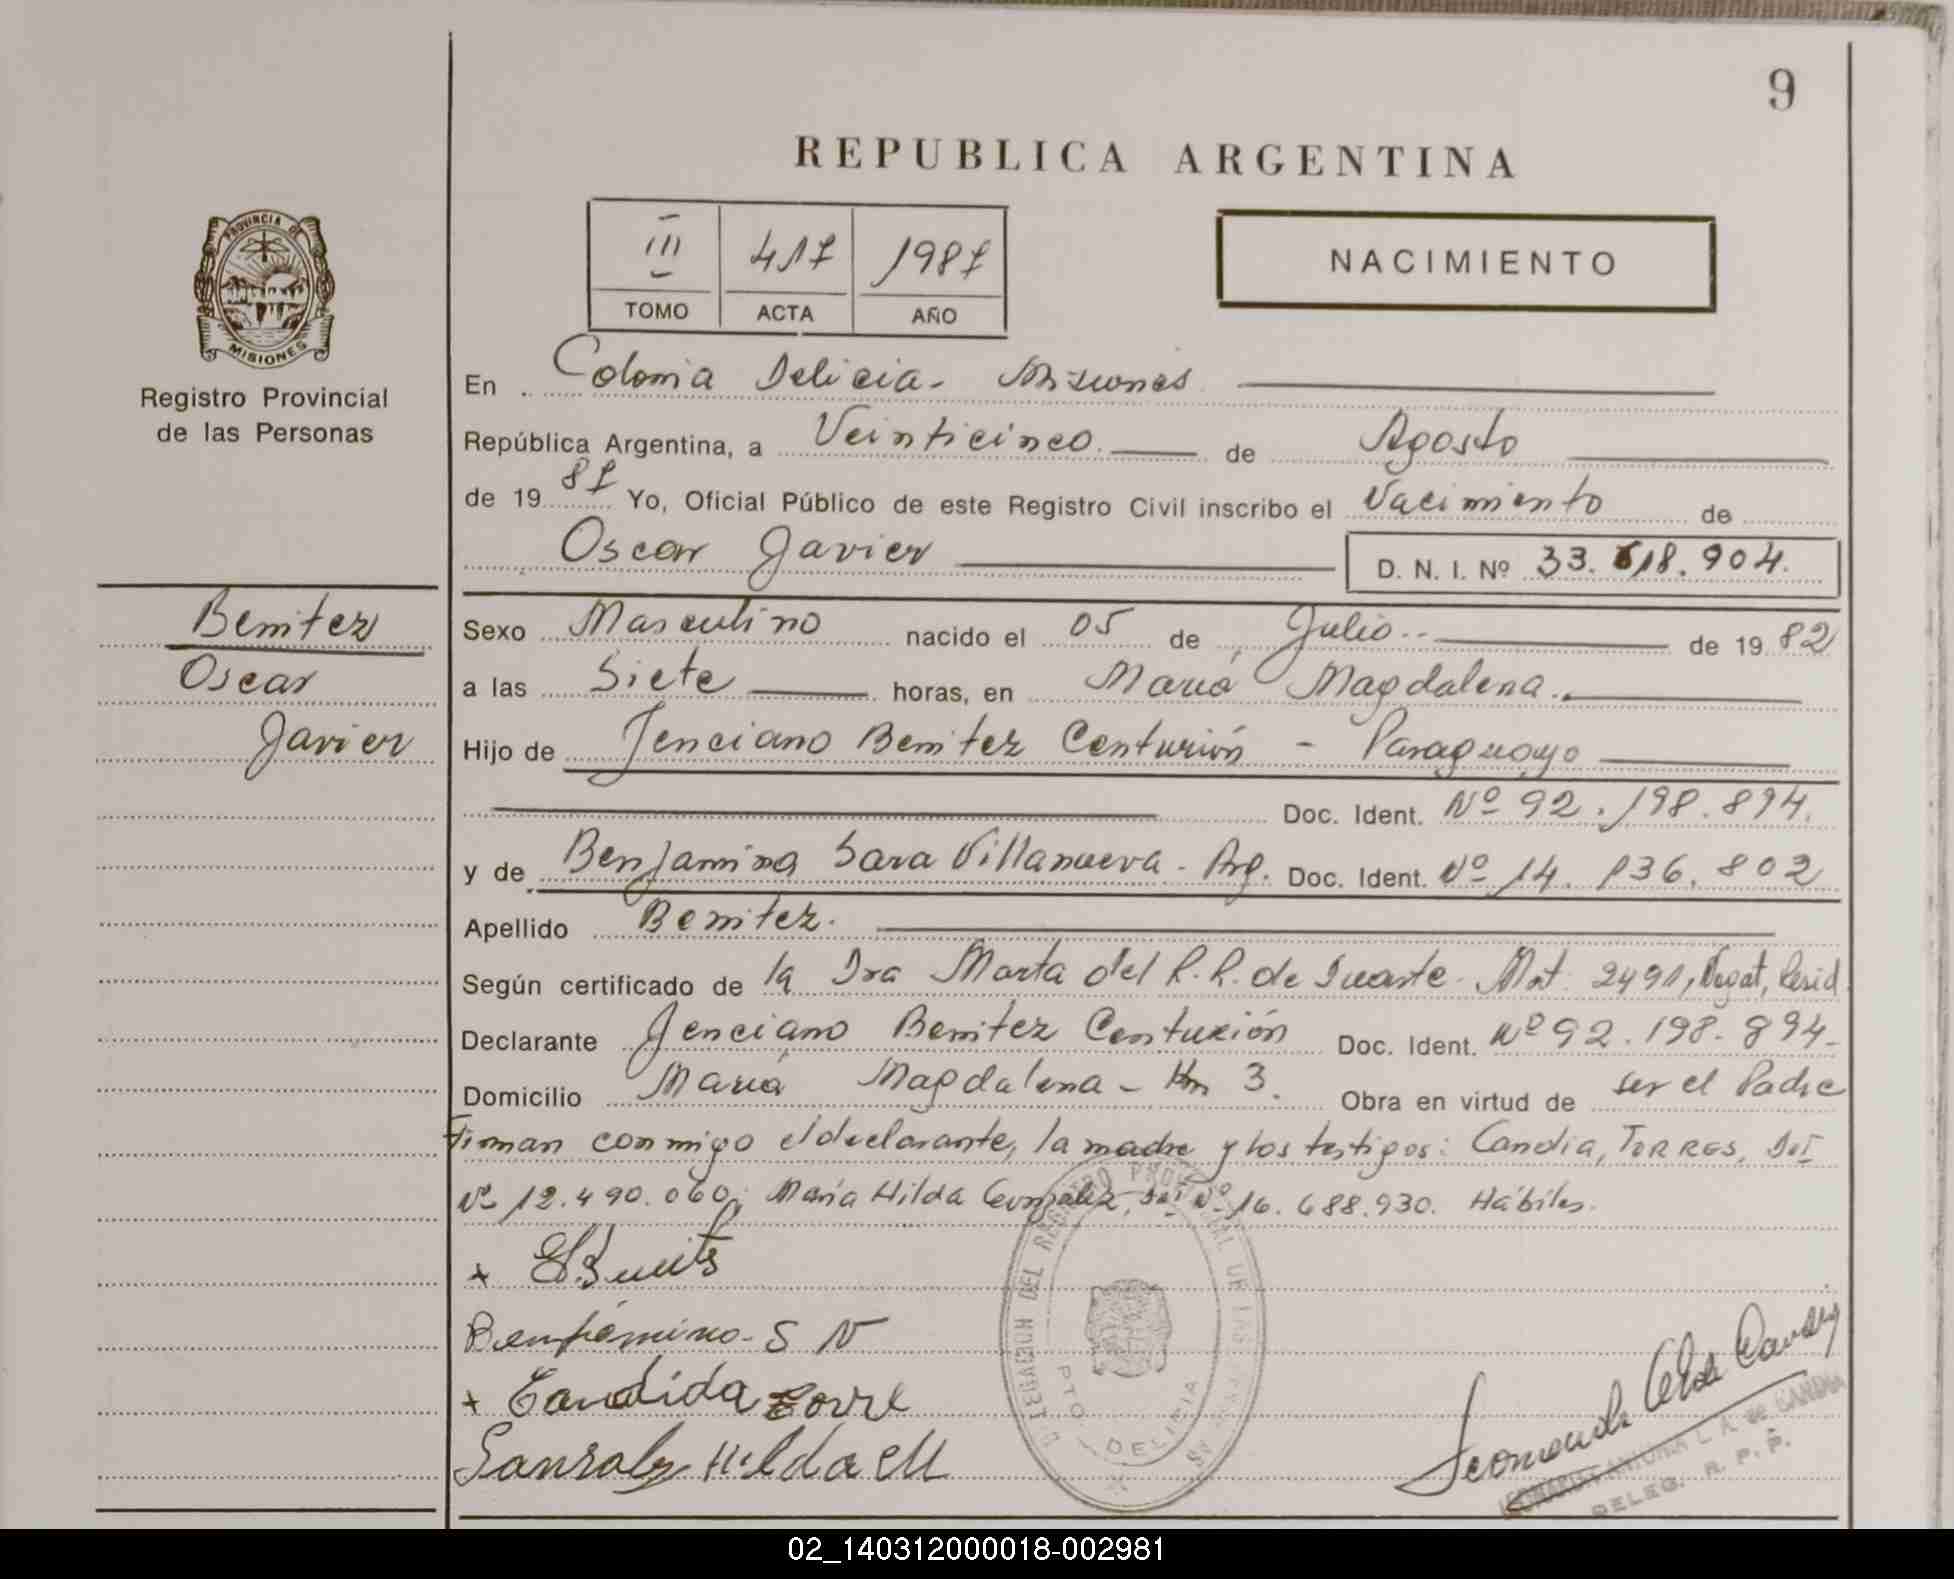 9
REPUBLICA ARGENTINA
III 417 1987
TOMO ACTA AÑO
NACIMIENTO
PROVINCIA DE
MISIONES
Registro Provincial
de las Personas
En Colonia Delicia - Misiones
República Argentina, a Veinticinco de Agosto
de 19 87 Yo, Oficial Público de este Registro Civil inscribo el Nacimiento de
Oscar Javier D. N. I. Nº 33.618.904.
Benitez
Oscar
Javier
Sexo Masculino nacido el 05 de Julio de 19 82
a las Siete horas, en María Magdalena.
Hijo de Jenciano Benitez Centurión - Paraguayo
Doc. Ident. Nº 92.198.894.
y de Benjamina Sara Villanueva - Arg. Doc. Ident. Nº 14. 136.802
Apellido Benitez.
Según certificado de la Dra Marta del R. R. de Duarte - Mat. 2491,
Declarante Jenciano Benitez Centurión Doc. Ident. Nº 92.198.894-
Domicilio María Magdalena - Km 3. Obra en virtud de ser el Padre
Firman conmigo el declarante, la madre y los testigos: Candia, TORRES, DNI
Nº 12.490.060; María Hilda Gonzalez, DNI Nº 16.688.930. Hábiles.
DELEGACION DEL REGISTRO PROVINCIAL DE LAS PERSONAS
PTO DELICIA
Candida Torre
Gonzalez Hilda M
DELEG. R. P. P.
02_140312000018-002981